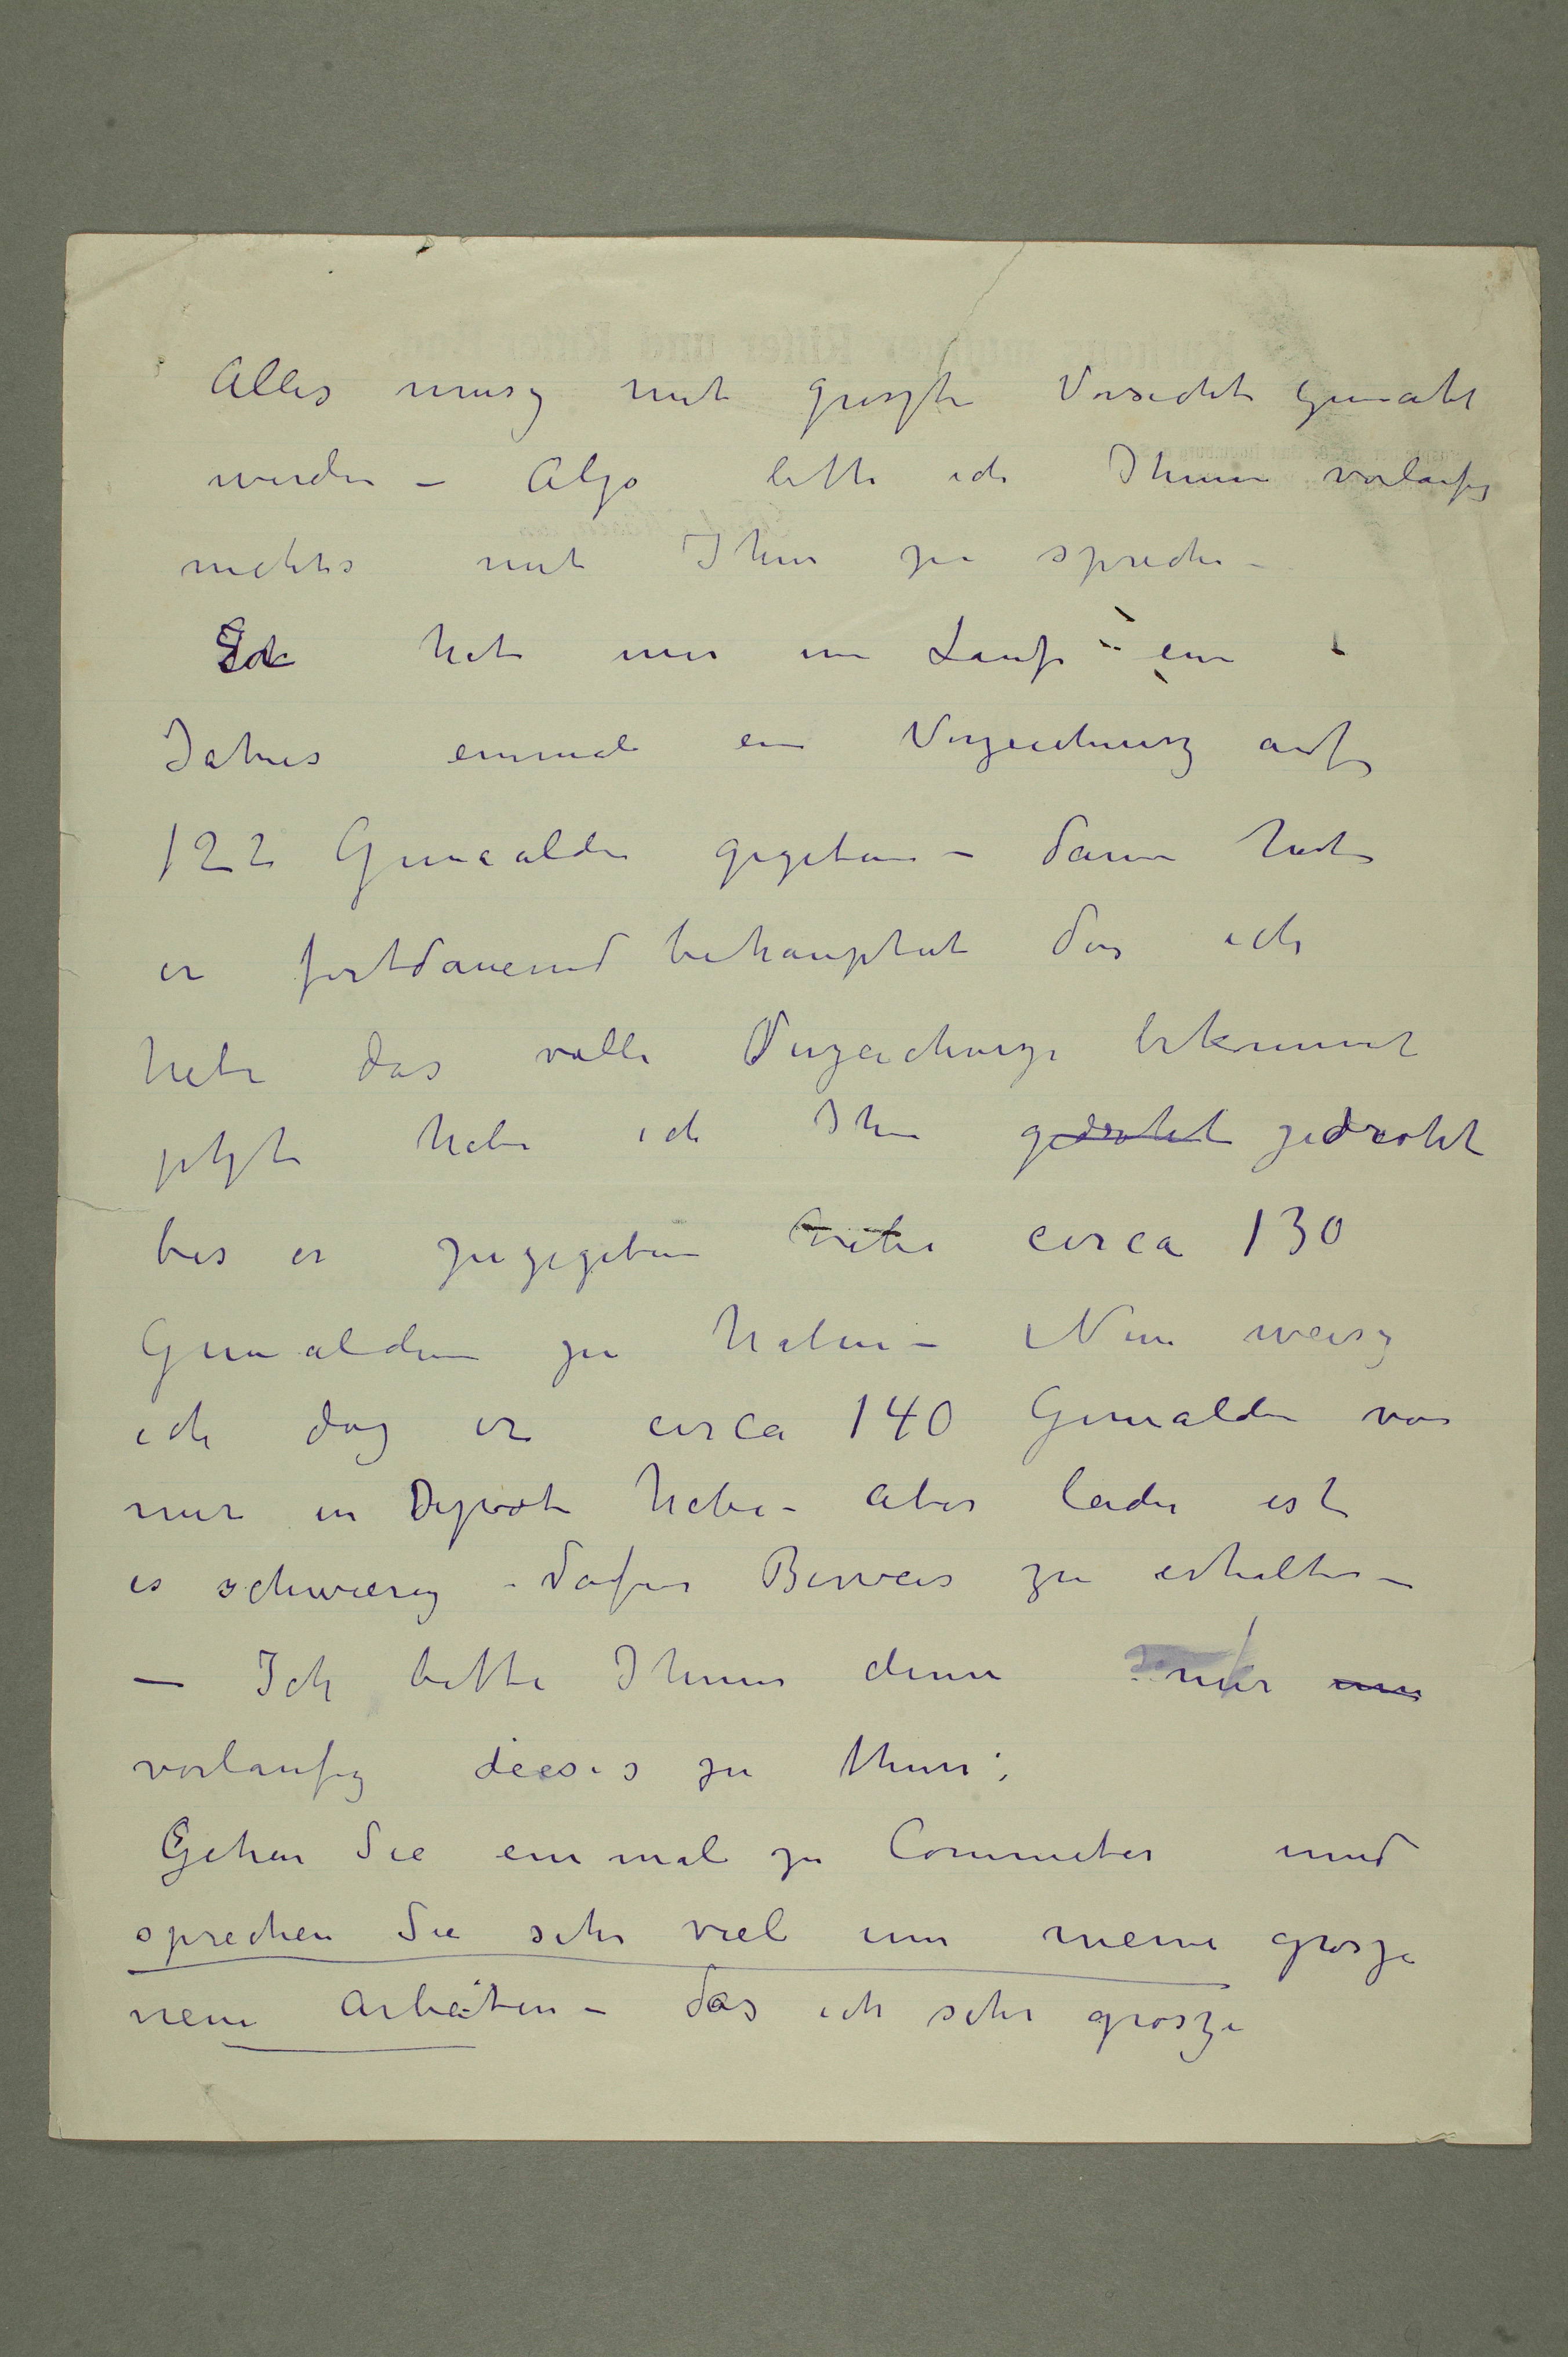 Alles musz mit groszte Vorsicht gemacht
werden – Also bitte ich Ihnen vorlaufig
nichts mit Ihm zu sprechen –
hat mir im Laufe ein
Jahres einmal ein Verzeichnisz auf
122 Gemaalden gegeben – dann hat
er fortdauernd behauptet das ich
habe das volle Verzeichnisz bekommt
jetzt habe ich Ihm gedroht gedroht
bis er zugegeben circa 130
Gemalden zu haben – Nun weisz
ich dasz er circa 140 Gemalden von
mir in Depot habe – aber leider ist
es schwierig dafur Beweis zu erhalten –
– Ich bitte Ihnen denn nur
vorlaufig dieses zu thun:
Gehen Sie einmal zu Commeter und
sprechen Sie sehr viel um meine grosze
neue Arbeiten – das ich sehr grosze